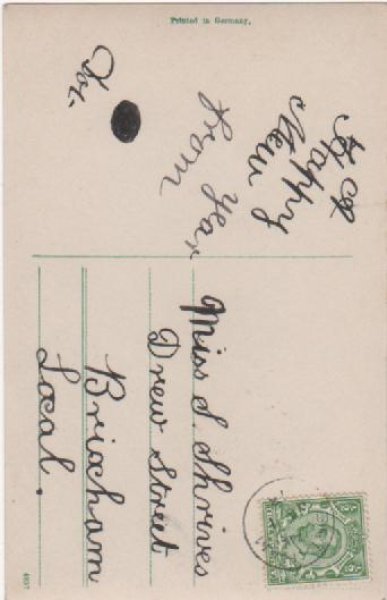 Printed in Germany.
A
Happy
New
Year
from
Dor.
Miss S. Shrives
Drew Street
Brixham
Local.